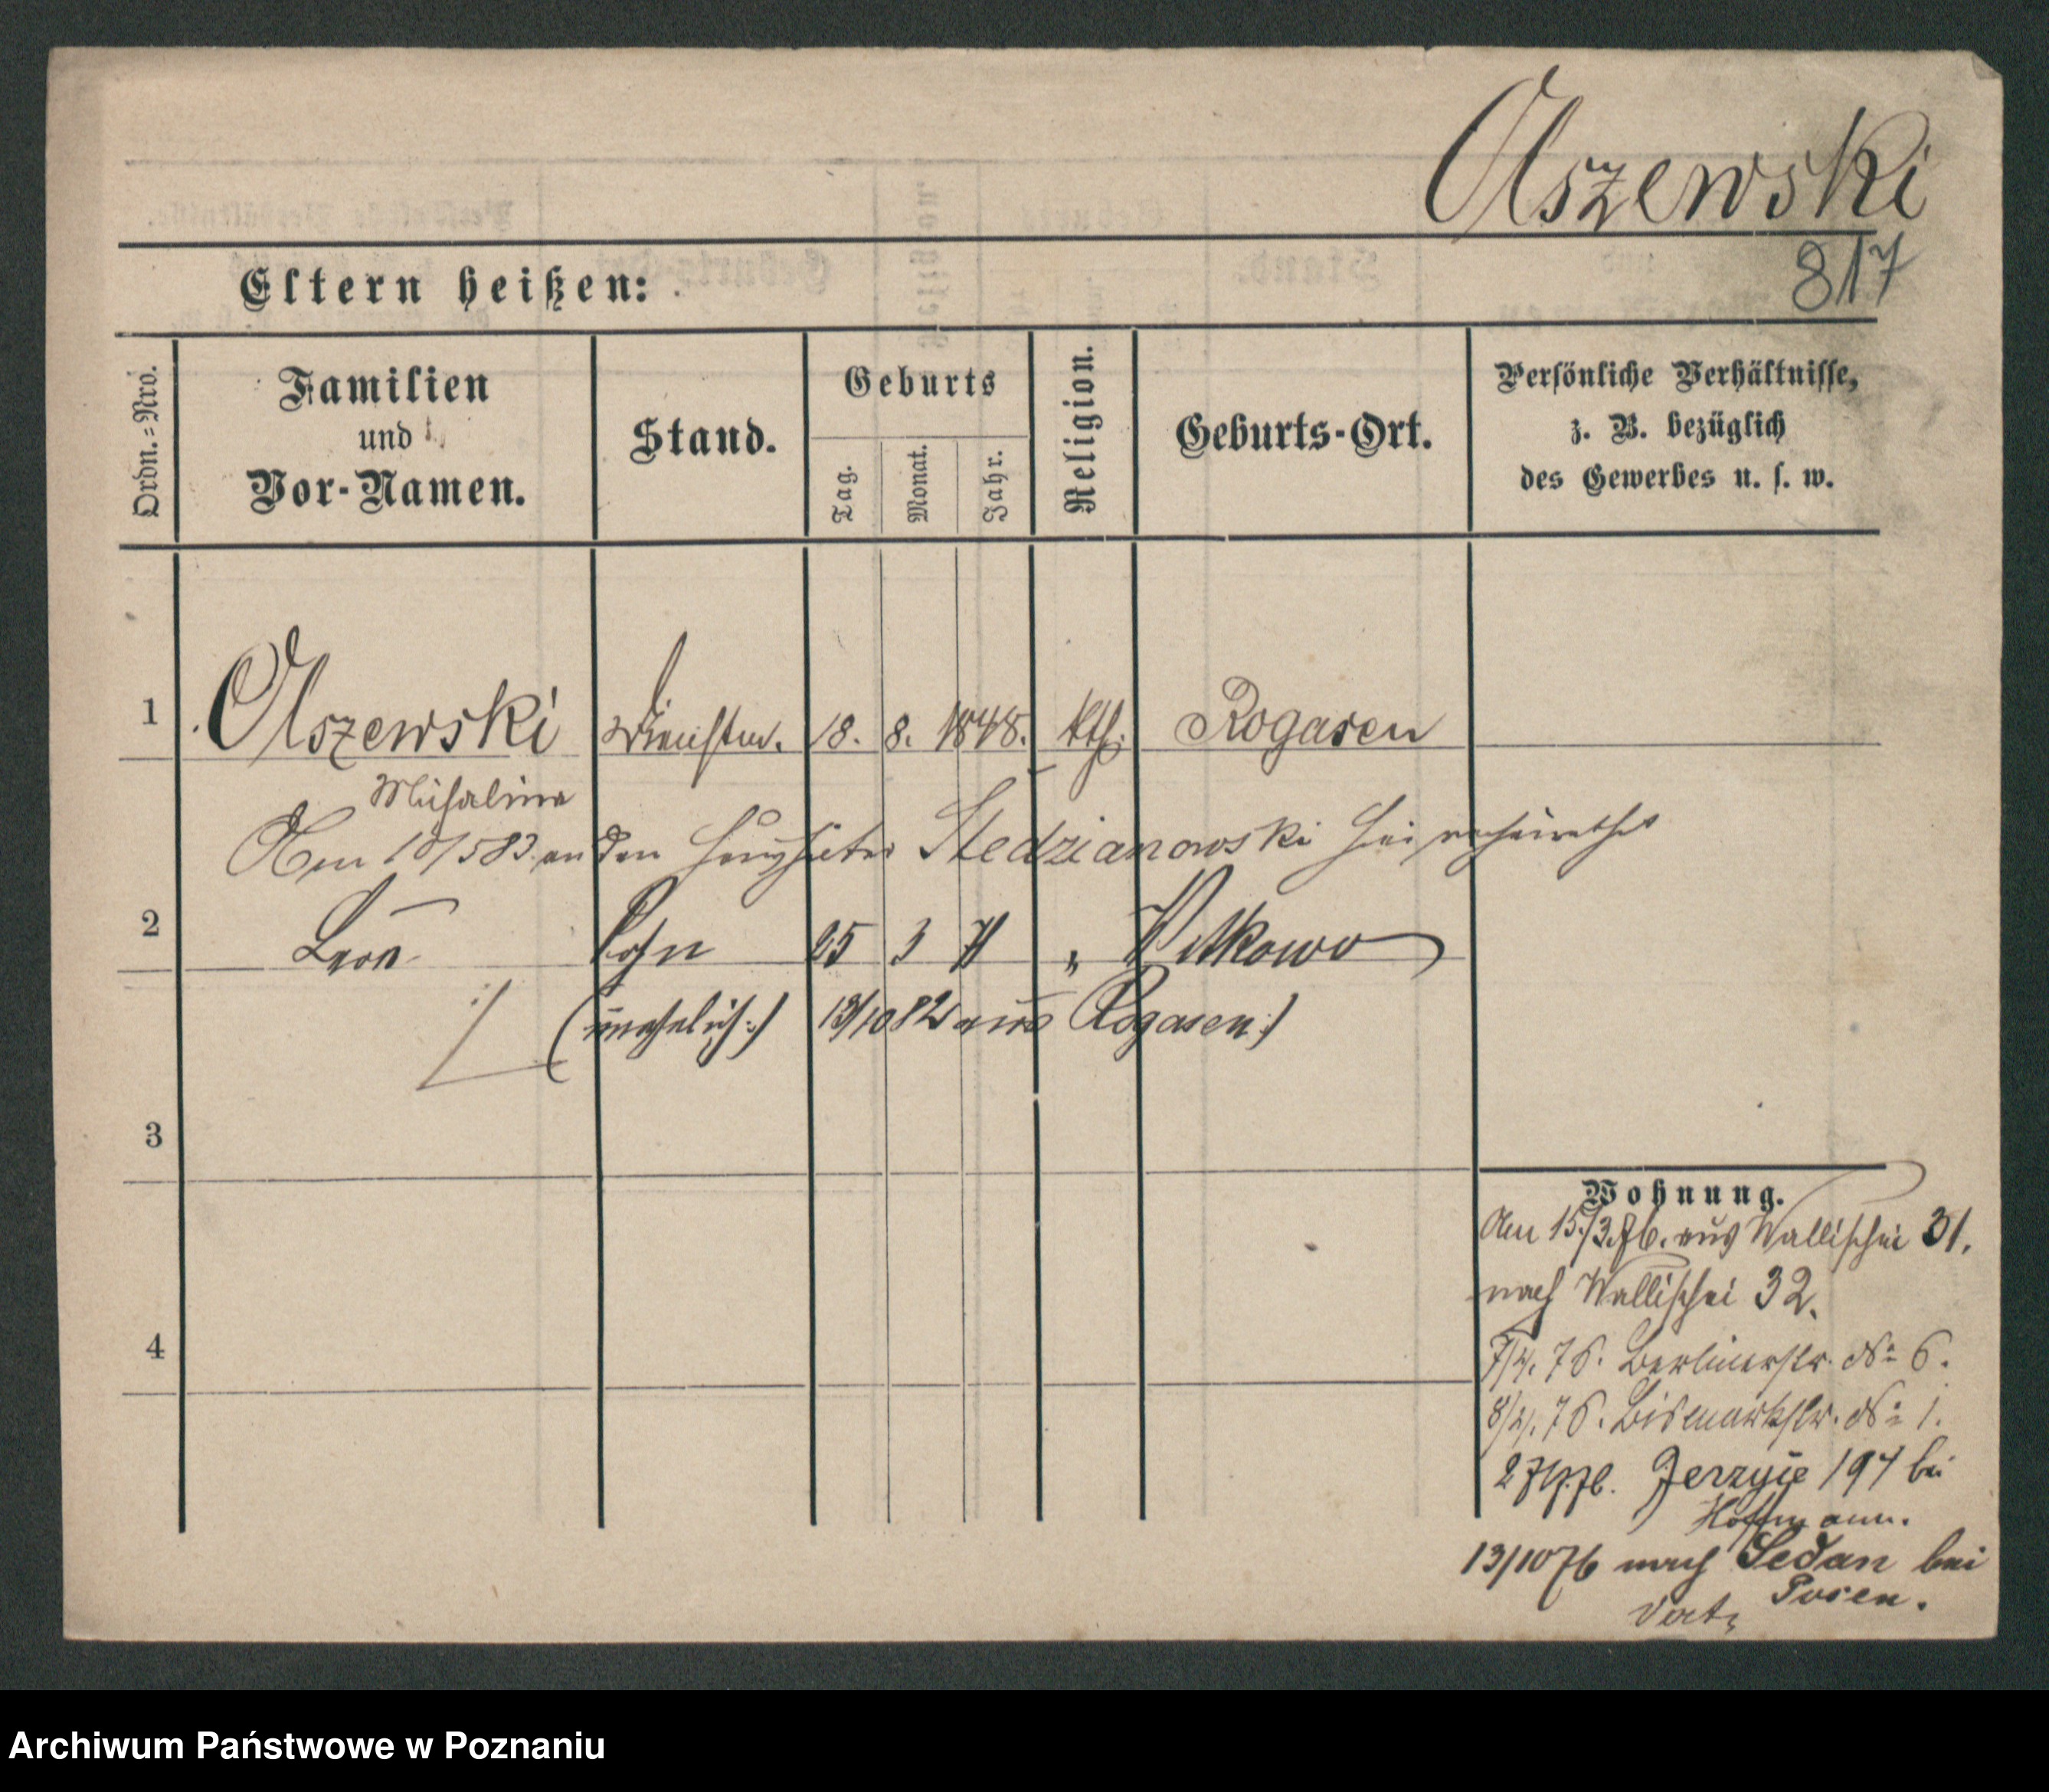 Olszewski
817
Eltern heißen:
Ordn.=Nro.
Familien
und
Vor-Namen.
Stand.
Geburts
Tag.
Monat.
Jahr.
Religion.
Geburts-Ort.
Persönliche Verhältnisse,
z. B. bezüglich
des Gewerbes u. s. w.
1 Olszewski 18. 8. 1848. kth. Rogasen
Michalina
Am an den Stedzianowski hier verheirathet
2 Leon Sohn 25 3 71 " Witkowo
(unehelich:) 13/10 82 aus Rogasen:)
3
4
Wohnung.
Am 15./3.76. aus Wallischei 31.
nach Wallischei 32.
7/4. 76. Berlinerstr. No 6.
8/4. 76. Bismarkstr. No 1.
Jerzyce 197 bei
Hoffmann.
13/10 76 nach Sedan bei
Posen.
Archiwum Państwowe w Poznaniu